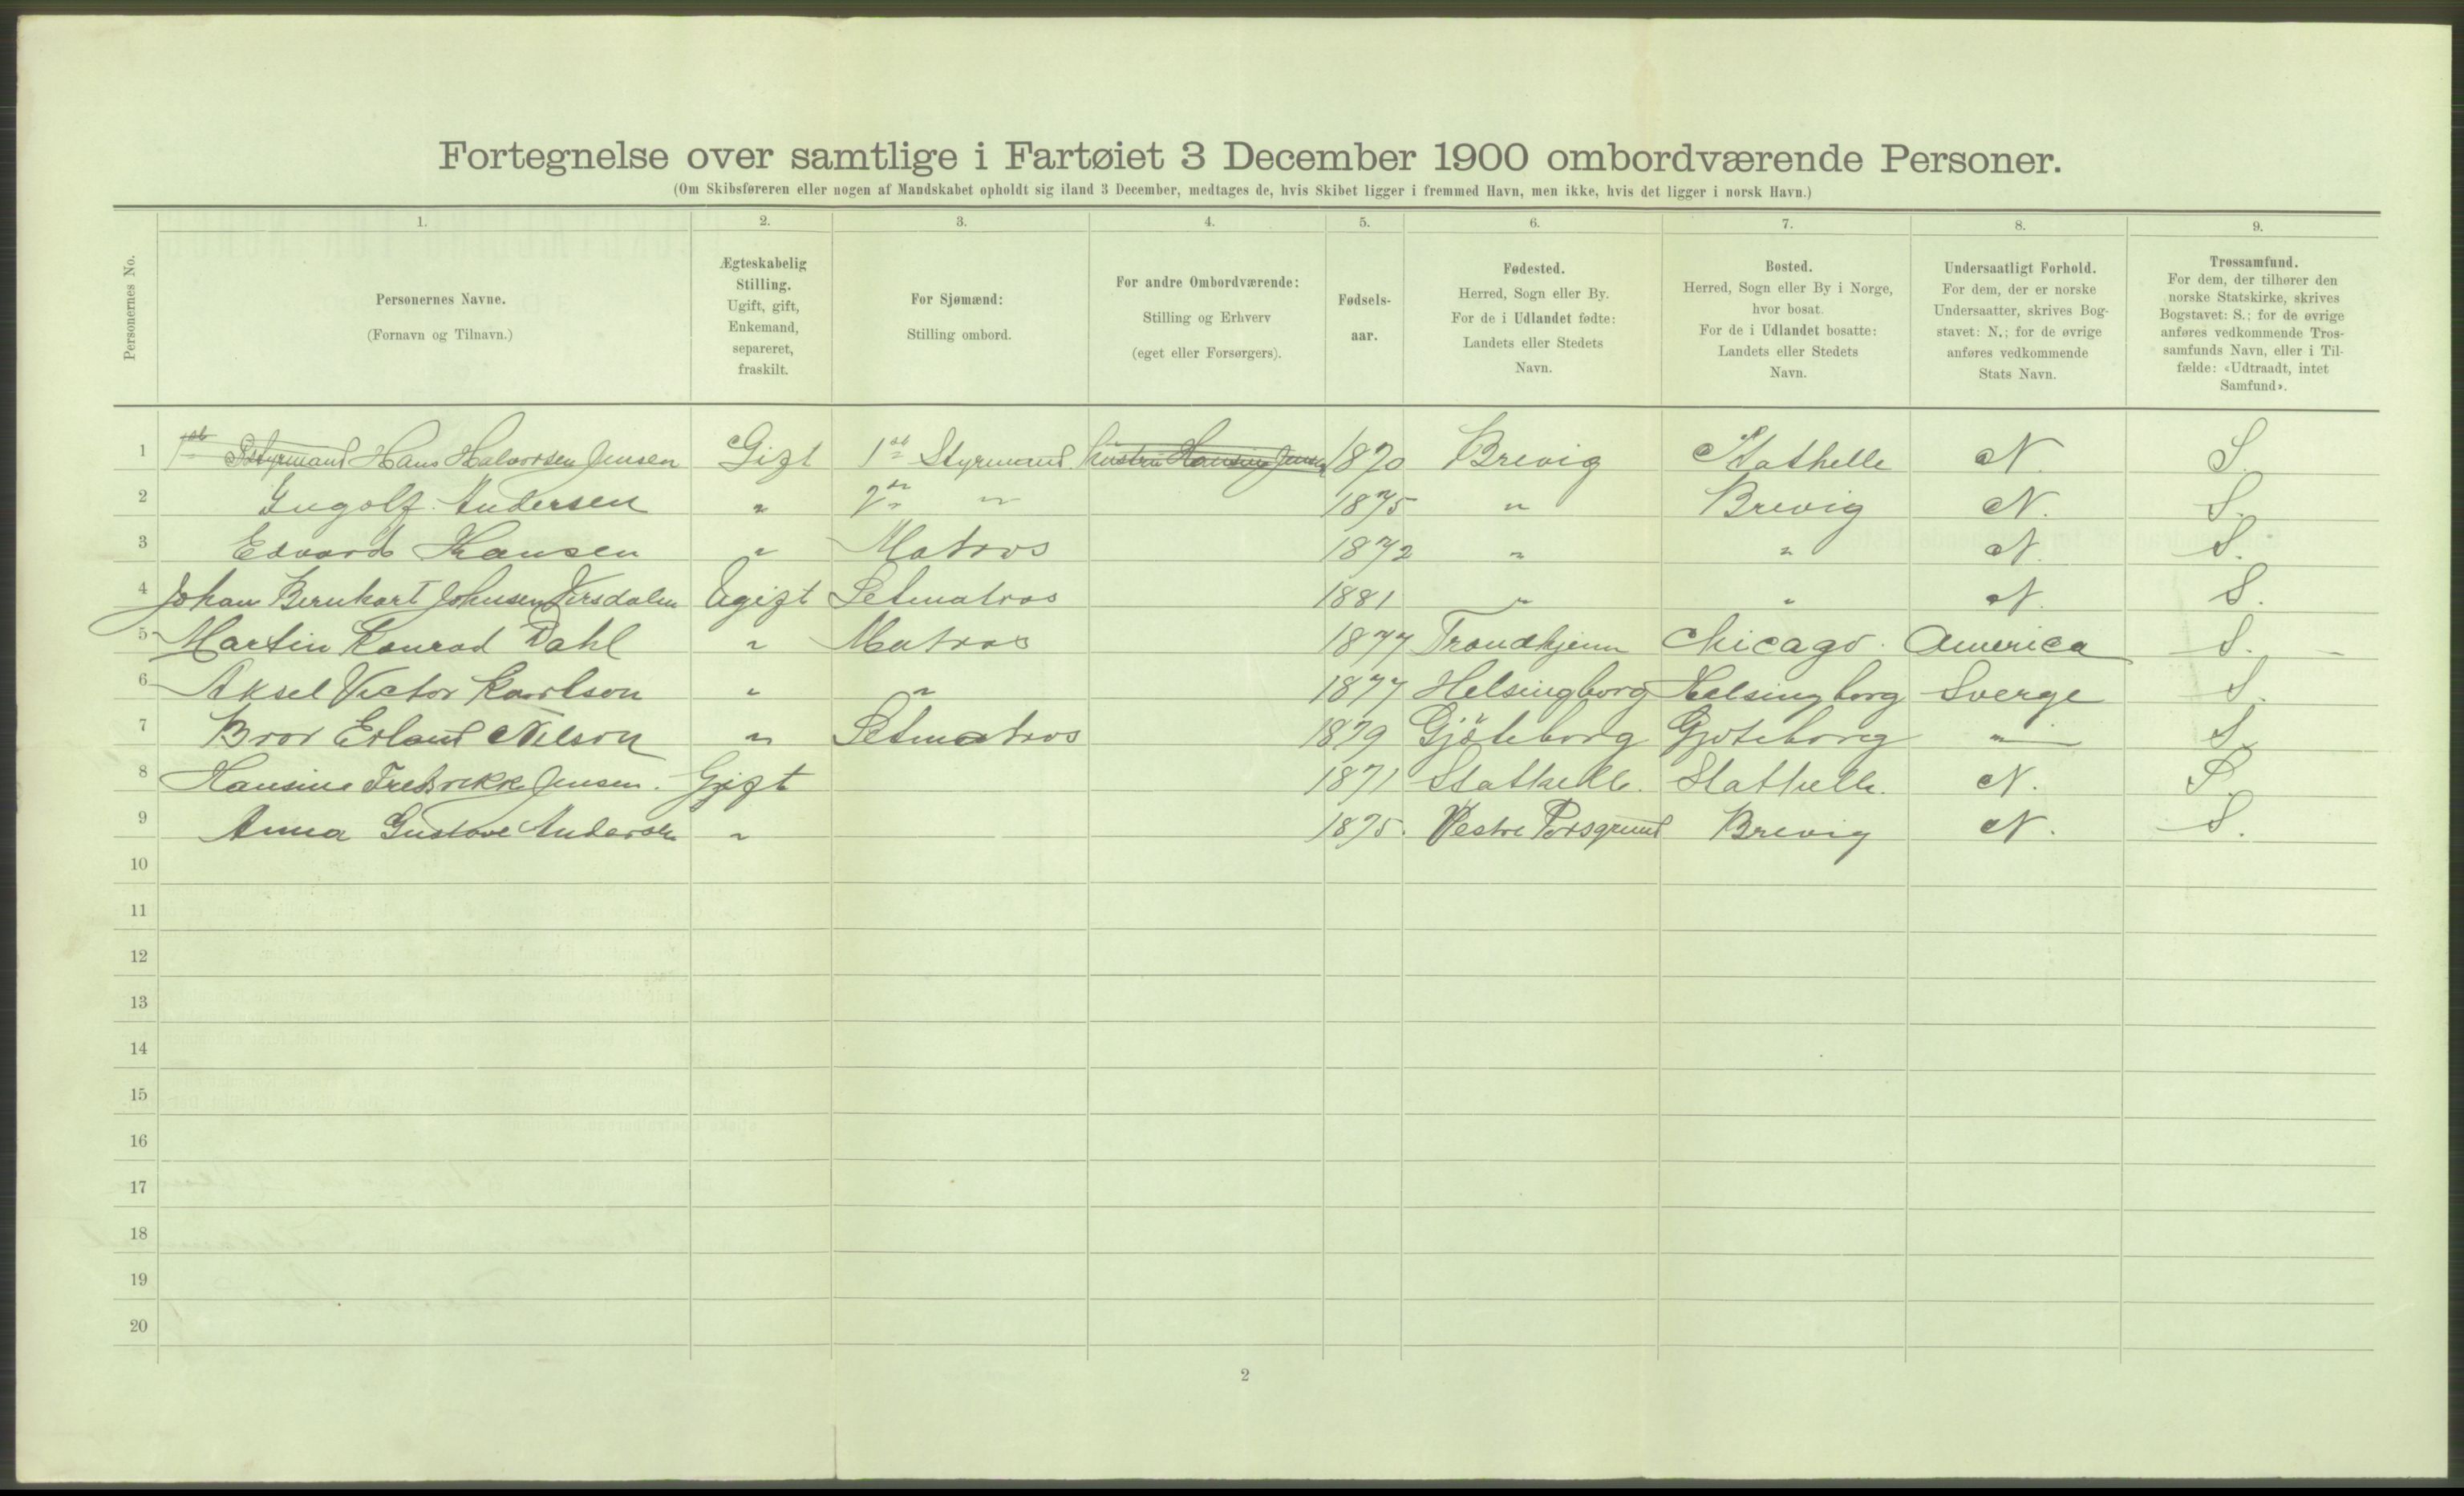 Fortegnelse over samtlige i Fartøiet 3 December 1900 ombordværende Personer.
(Om Skibsføreren eller nogen af Mandskabet opholdt sig iland 3 December, medtages de, hvis Skibet ligger i fremmed Havn, men ikke, hvis det ligger i norsk Havn.)
Personernes No.
1. 2. 3. 4. 5. 6. 7. 8. 9.
Personernes Navne.
(Fornavn og Tilnavn.)
Ægteskabelig
Stilling.
Ugift, gift,
Enkemand,
separeret,
fraskilt.
For Sjømænd:
Stilling ombord.
For andre Ombordværende:
Stilling og Erhverv
(eget eller Forsørgers).
Fødsels-
aar.
Fødested.
Herred, Sogn eller By.
For de i Udlandet fødte:
Landets eller Stedets
Navn.
Bosted.
Herred, Sogn eller By i Norge,
hvor bosat.
For de i Udlandet bosatte:
Landets eller Stedets
Navn.
Undersaatligt Forhold.
For dem, der er norske
Undersaatter, skrives Bog-
stavet: N.; for de øvrige
anføres vedkommende
Stats Navn.
Trossamfund.
For dem, der tilhører den
norske Statskirke, skrives
Bogstavet: S.; for de øvrige
anføres vedkommende Tros-
samfunds Navn, eller i Til-
fælde: «Udtraadt, intet
Samfund».
1 1st Styrmand Hans Halvorsen Jensen Gift 1st Styrmand Hustru Hansine Jensen 1870 Brevig Stathelle N. S.
2 Ingolf Andersen " 2n " 1875 " Brevig N. S.
3 Edvard Hansen " Matros 1872 " " N. S.
4 Johan Bernhart Johnsen Ugift Letmatros 1881 " " N. S.
5 Martin Konrad Dahl " Matros 1877 Trondhjem Chicago. America S.
6 Aksel Victor Karlson " " 1877 Helsingborg Helsingborg Sverge S.
7 Bror Erland Nilson " Letmatros 1879 Gjöteborg Gjoteborg " S.
8 Hansine Fredrikke Jensen. Gift 1871 Stathelle. Stathelle. N. S.
9 Anna Gustave Andersen " 1875. Vestre Porsgrund Brevig N. S.
10
11
12
13
14
15
16
17
18
19
20
2